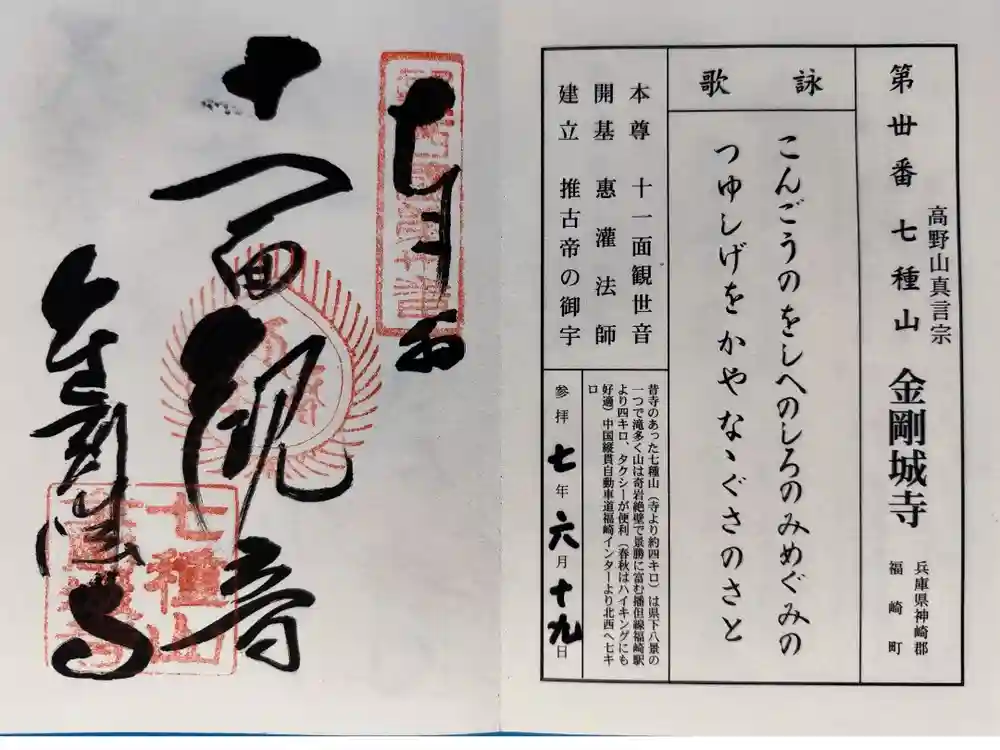 第丗番 七種山 金剛城寺
高野山真言宗
兵庫県神崎郡
福崎町
詠歌
こんごうのをしへのしろのみめぐみの
つゆしげをかやなゝぐさのさと
本尊 十一面観世音
開基 惠灌法師
建立 推古帝の御宇
昔寺のあった七種山(寺より約四キロ)は県下八景の
一つで滝多く山は奇岩絶壁で景勝に富む播但線福崎駅
より四キロ、タクシーが便利(春秋はハイキングにも
好適)中国縦貫自動車道福崎インターより北西へ七キ
ロ
参拝 七年六月十九日
十一面観音
金剛城寺
七種山